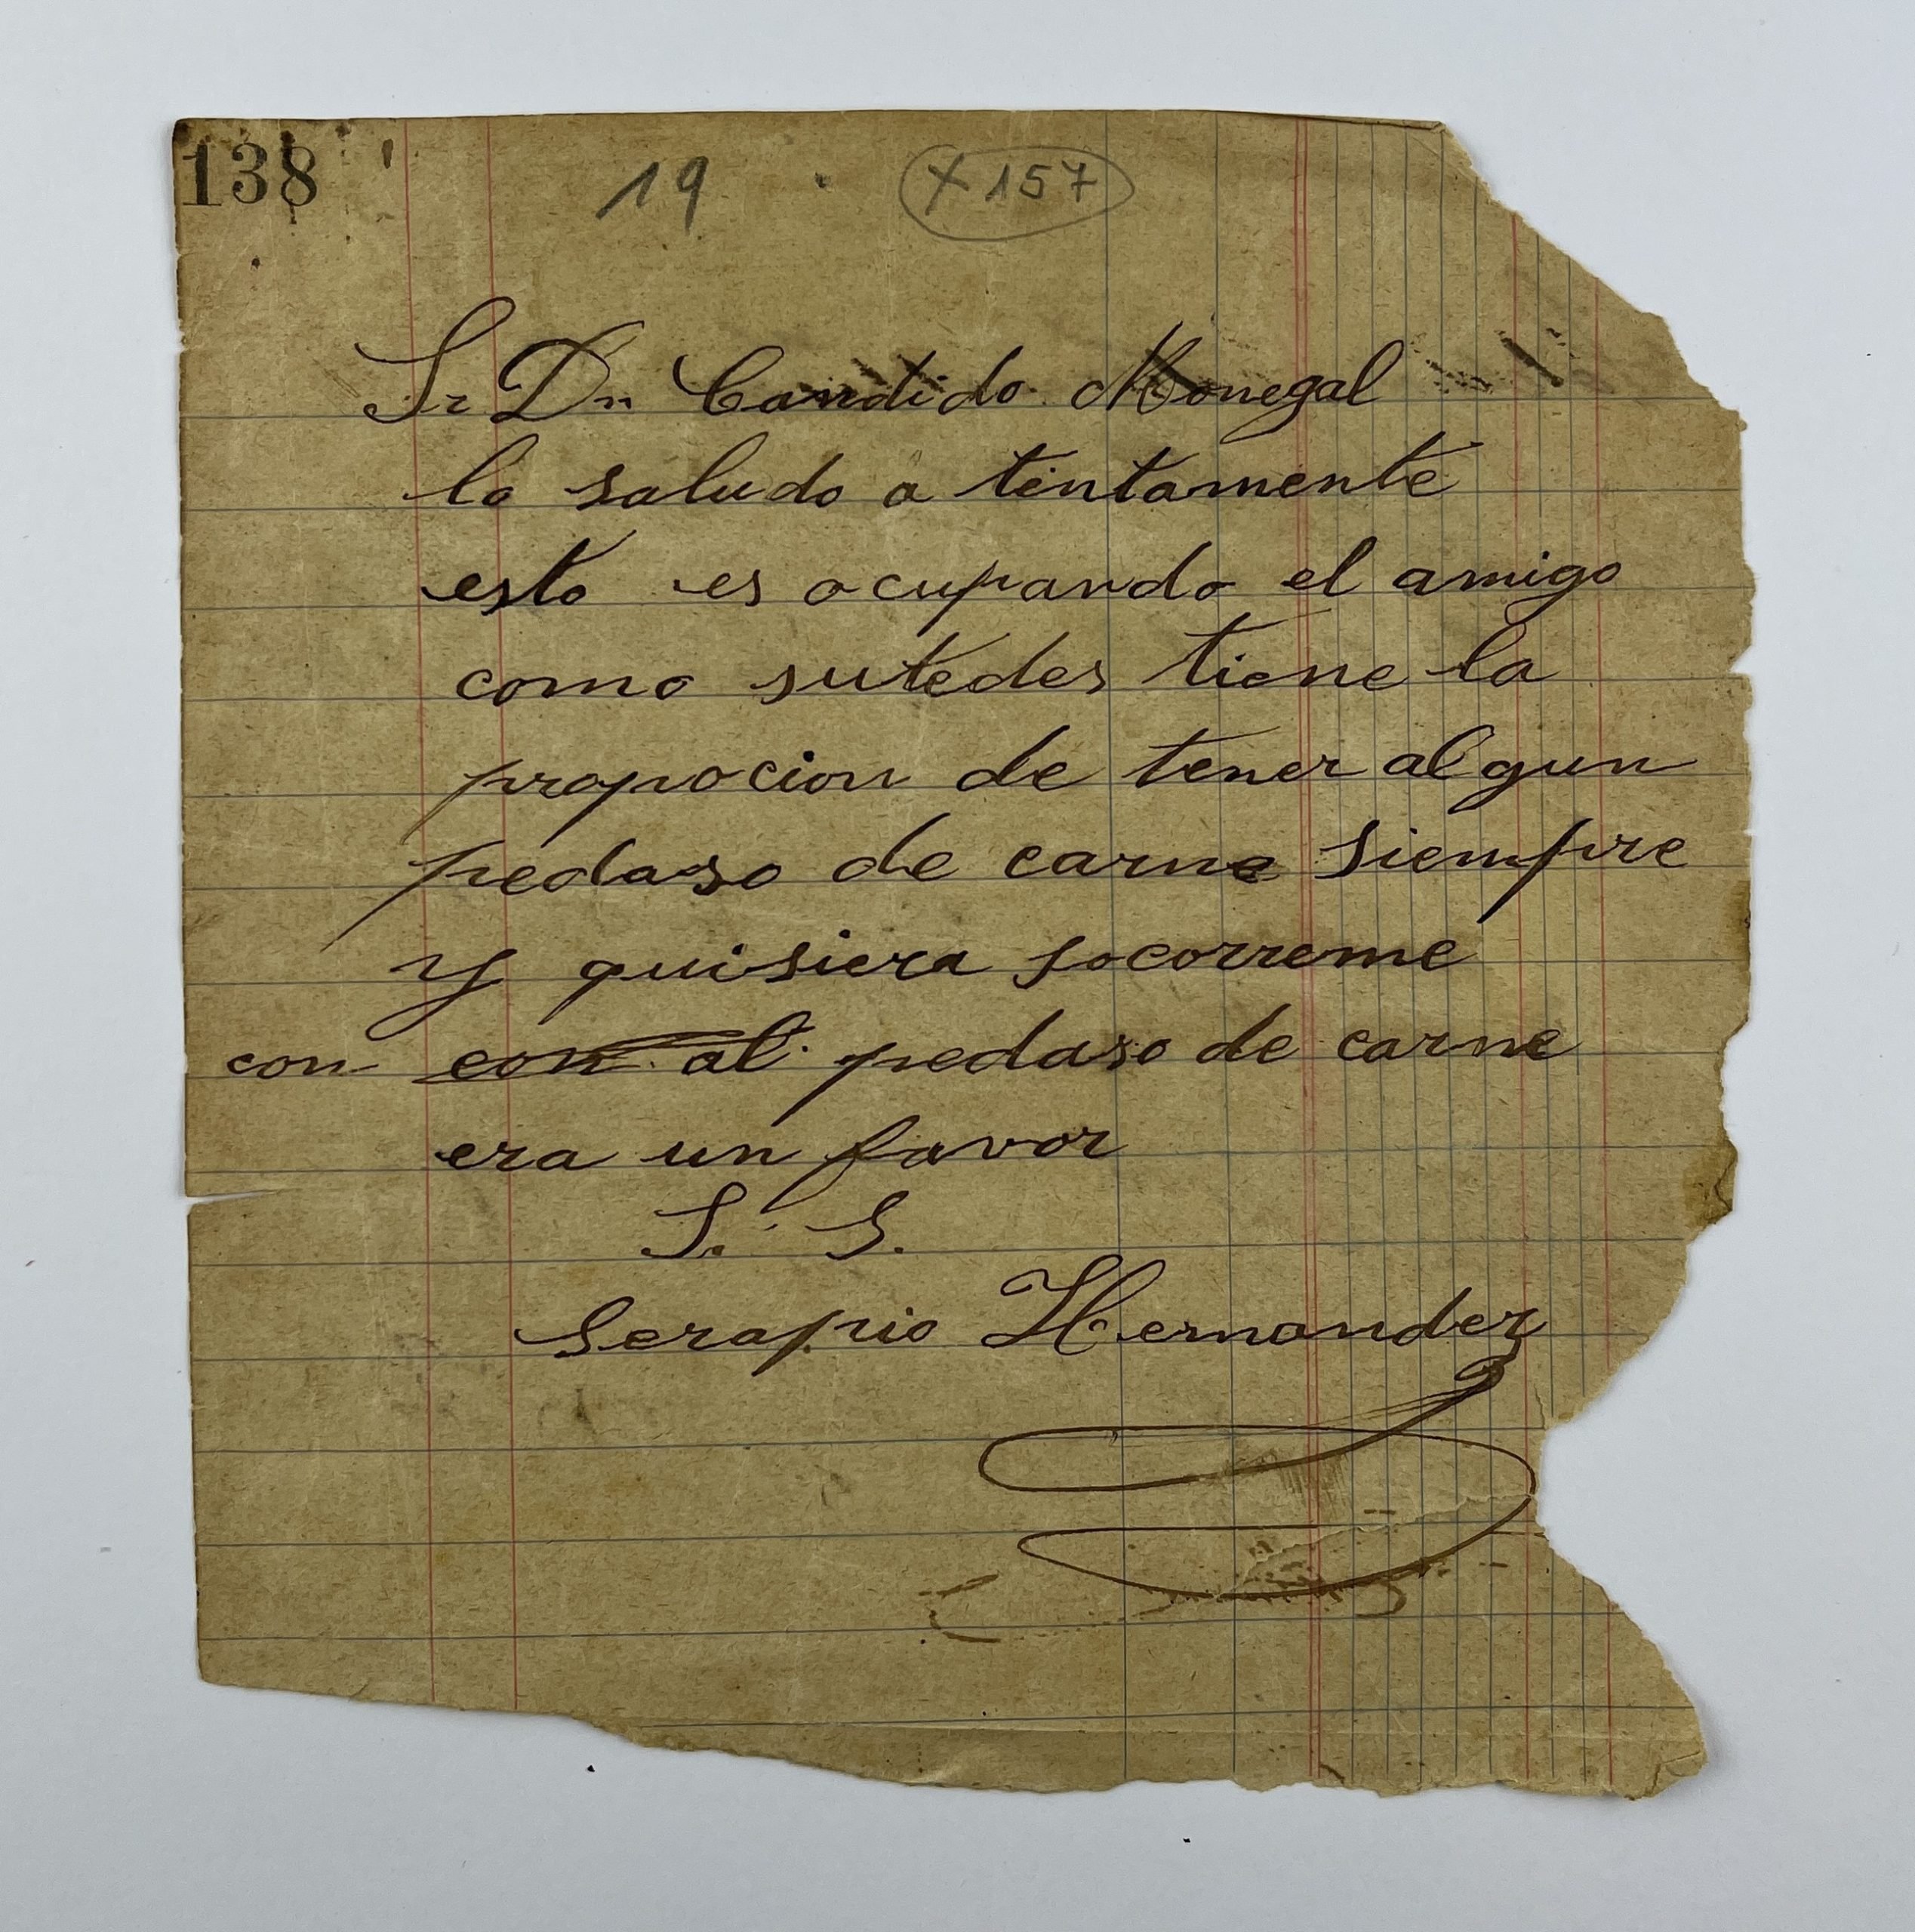 138
19
X 157
Sr Dn Candido Monegal
lo saludo a tintamente
esto es ocupando el amigo
como sutedes tiene la
propocion de tener algun
pedaso de carne siempre
y quisiera socorreme
con con al pedaso de carne
era un favor
S. S.
Serapio Hernandez